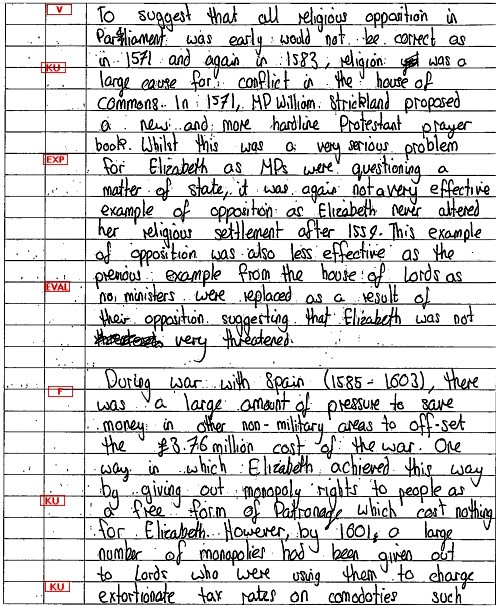 V To suggest that all religious opposition in
Parthliament was early would not be correct as
KU in 1571 and again in 1583, religion was a
large cause for conflict in the house of
commons. In 1571, MP William Strickland proposed
a new and more hardline Protestant prayer
book. Whilst this was a very serious problem
EXP for Elizabeth as MPs were questioning a
matter of state, it was again not a very effective
example of opposition as Elizabeth never altered
her religious settlement after 1559. This example
of opposition was also less effective as the
previous example from the house of Lords as
EVAL no ministers were replaced as a result of
their opposition suggesting that Elizabeth was not
very threatened.
During war with Spain (1585 - 1603), there
F was a large amount of pressure to save
money in other non-military areas to off-set
the £3.76 million cost of the war. One
way in which Elizabeth achieved this way
by giving out monopoly rights to people as
KU a free form of Patronage which cost nothing
for Elizabeth. However, by 1601, a large
number of monopolies had been given out
to Lords who were using them to charge
KU extortionate tax rates on comodoties such